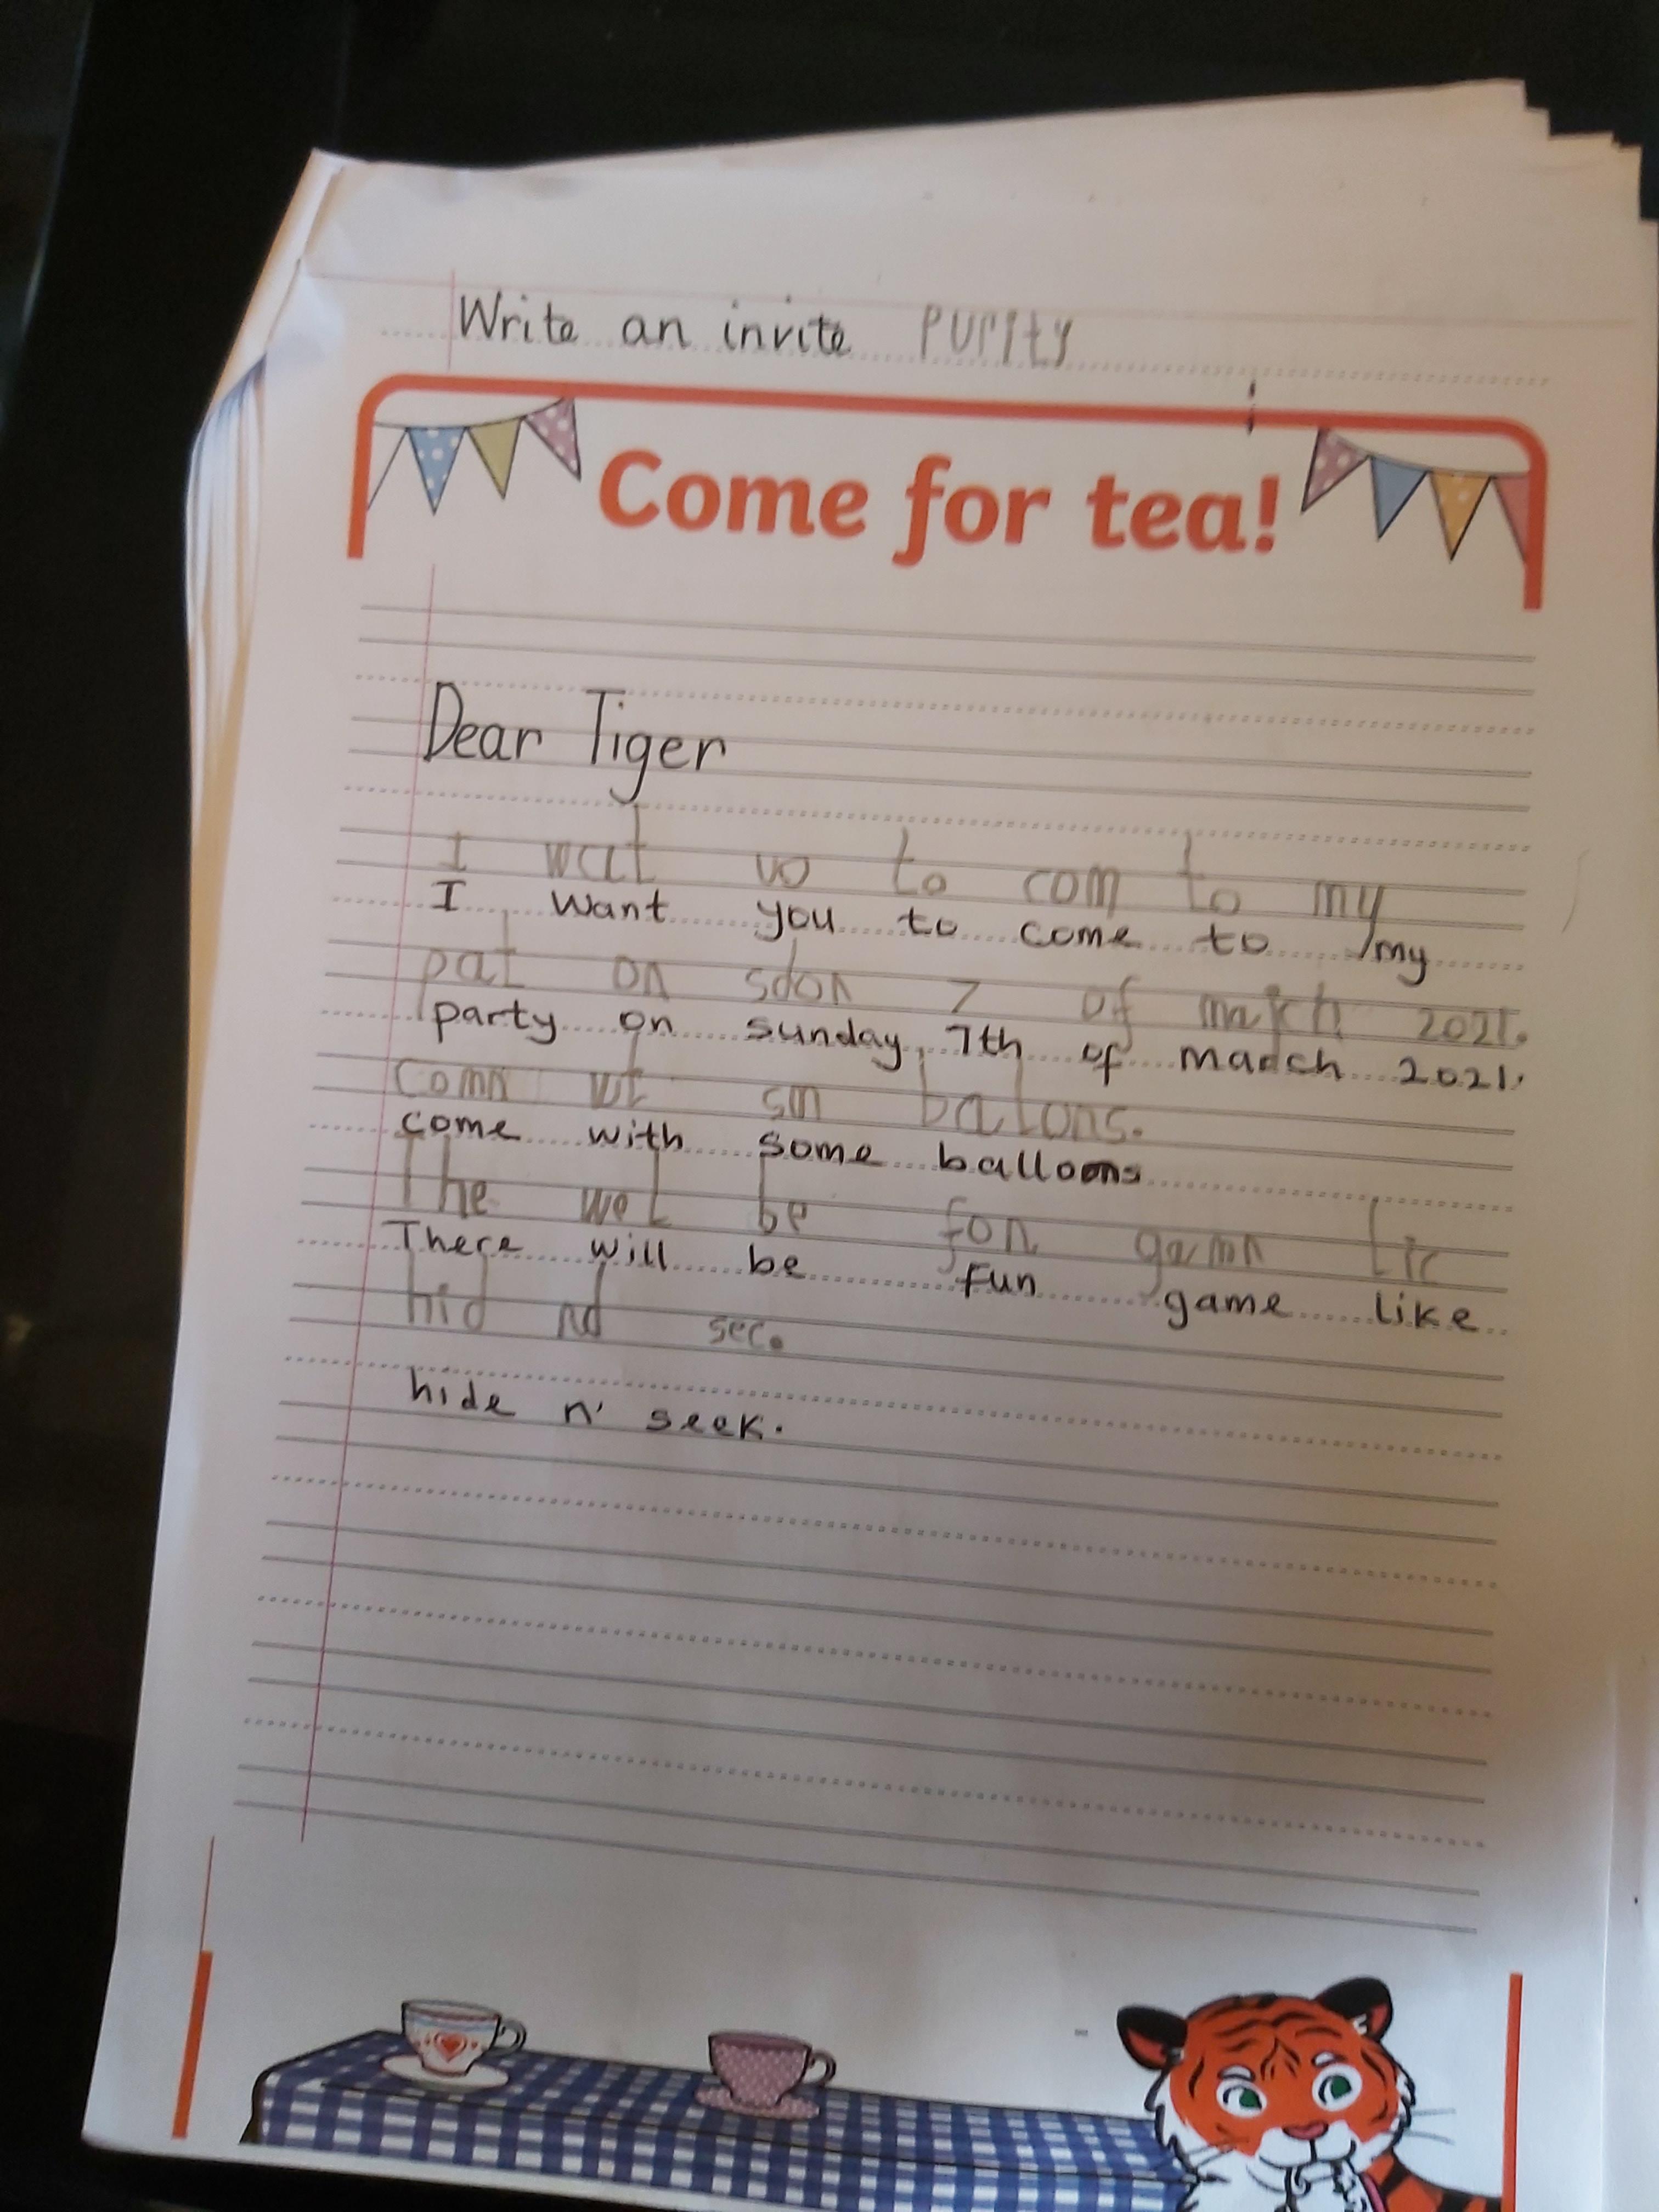 Write an invite Purity
Come for tea!
Dear Tiger
I wat uo to com to my
I want you to come to my
pat on sdon 7 of march 2021.
party on sunday, 7th of march 2021.
comn wt sm balons.
come with some balloons
The wel be fon gamn lic
There will be fun game like
hid nd sec.
hide n' seek.